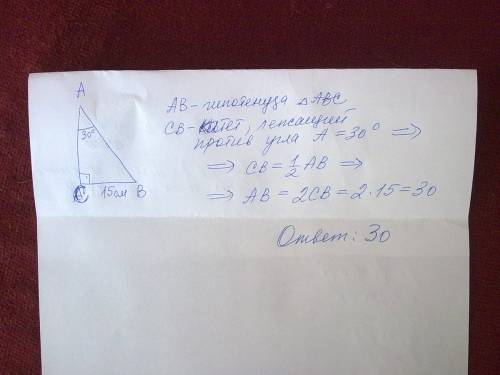 A
30°
C
15 см
B
AB - гипотенуза △ABC
CB - катет, лежащий
против угла A = 30° ⇒
⇒ CB = 1/2 AB ⇒
⇒ AB = 2CB = 2·15 = 30
Ответ: 30